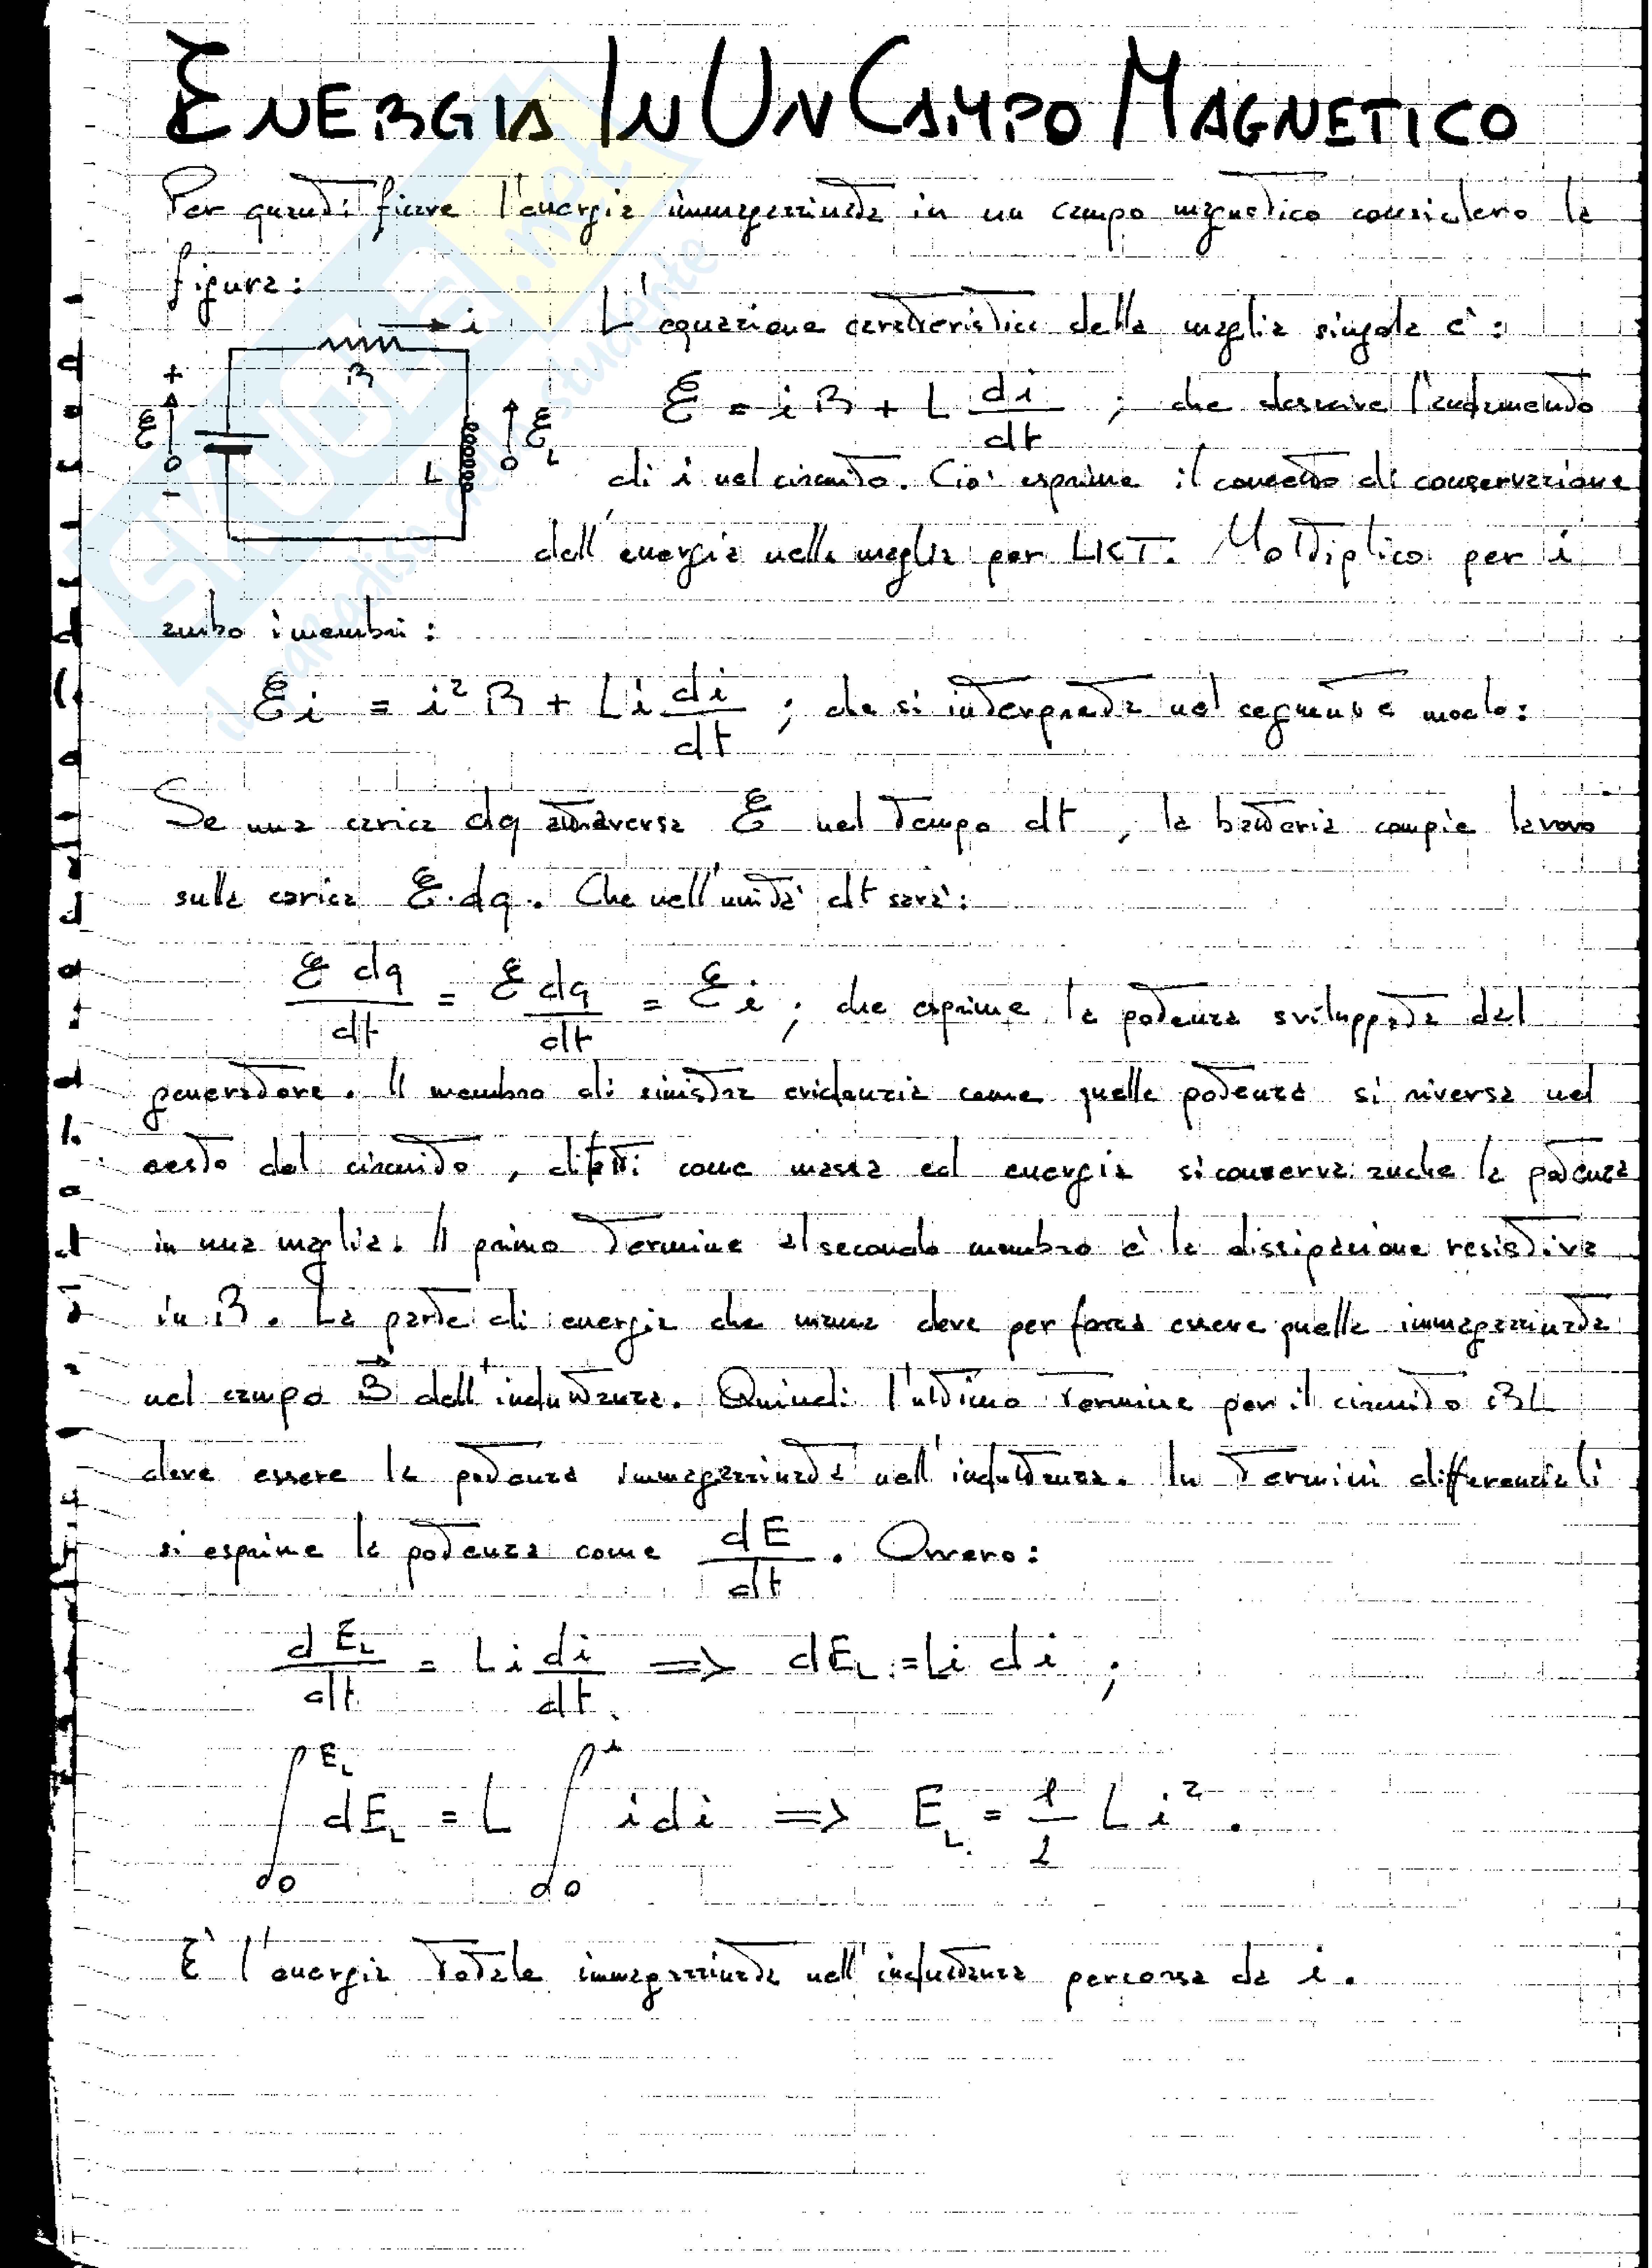 ENERGIA IN UN CAMPO MAGNETICO
Per quantificare l'energia immagazzinata in un campo magnetico considero la
figura:
L'equazione caratteristica della maglia singola è:
i
R
+
ℰ
-
L
ℰ_L
ℰ = iR + L di/dt ; che descrive l'andamento
di i nel circuito. Ciò esprime il concetto di conservazione
dell'energia nella maglia per LKT. Moltiplico per i
ambo i membri:
ℰi = i² R + Li di/dt ; che si interpreta nel seguente modo:
Se una carica dq attraversa ℰ nel tempo dt, la batteria compie lavoro
sulla carica ℰ·dq. Che nell'unità dt sarà:
ℰ dq/dt = ℰ dq/dt = ℰi ; che esprime la potenza sviluppata dal
generatore. Il membro di sinistra evidenzia come quella potenza si riversa nel
resto del circuito, difatti come massa ed energia si conserva anche la potenza
in una maglia. Il primo termine al secondo membro è la dissipazione resistiva
in R. La parte di energia che manca deve per forza essere quella immagazzinata
nel campo B⃗ dell'induttanza. Quindi l'ultimo termine per il circuito RL
deve essere la potenza immagazzinata nell'induttanza. In termini differenziali
si esprime la potenza come dE/dt. Ovvero:
dE_L/dt = Li di/dt ⇒ dE_L = Li di ;
∫₀^{E_L} dE_L = L ∫₀^i i di ⇒ E_L = 1/2 L i².
È l'energia totale immagazzinata nell'induttanza percorsa da i.